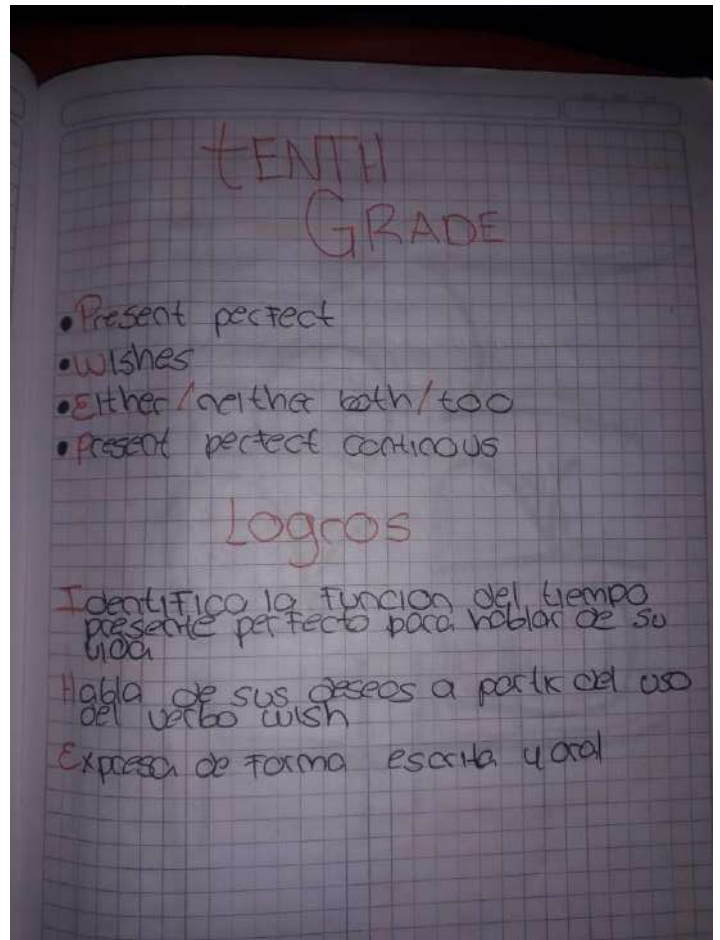 tENTH
GRADE
• Present perfect
• Wishes
• Either/neither both/too
• Present perfect continous
Logros
Identifico la funcion del tiempo
presente perfecto para hablar de su
vida
Habla de sus deseos a partir del uso
del verbo wish
Expresa de forma escrita y oral